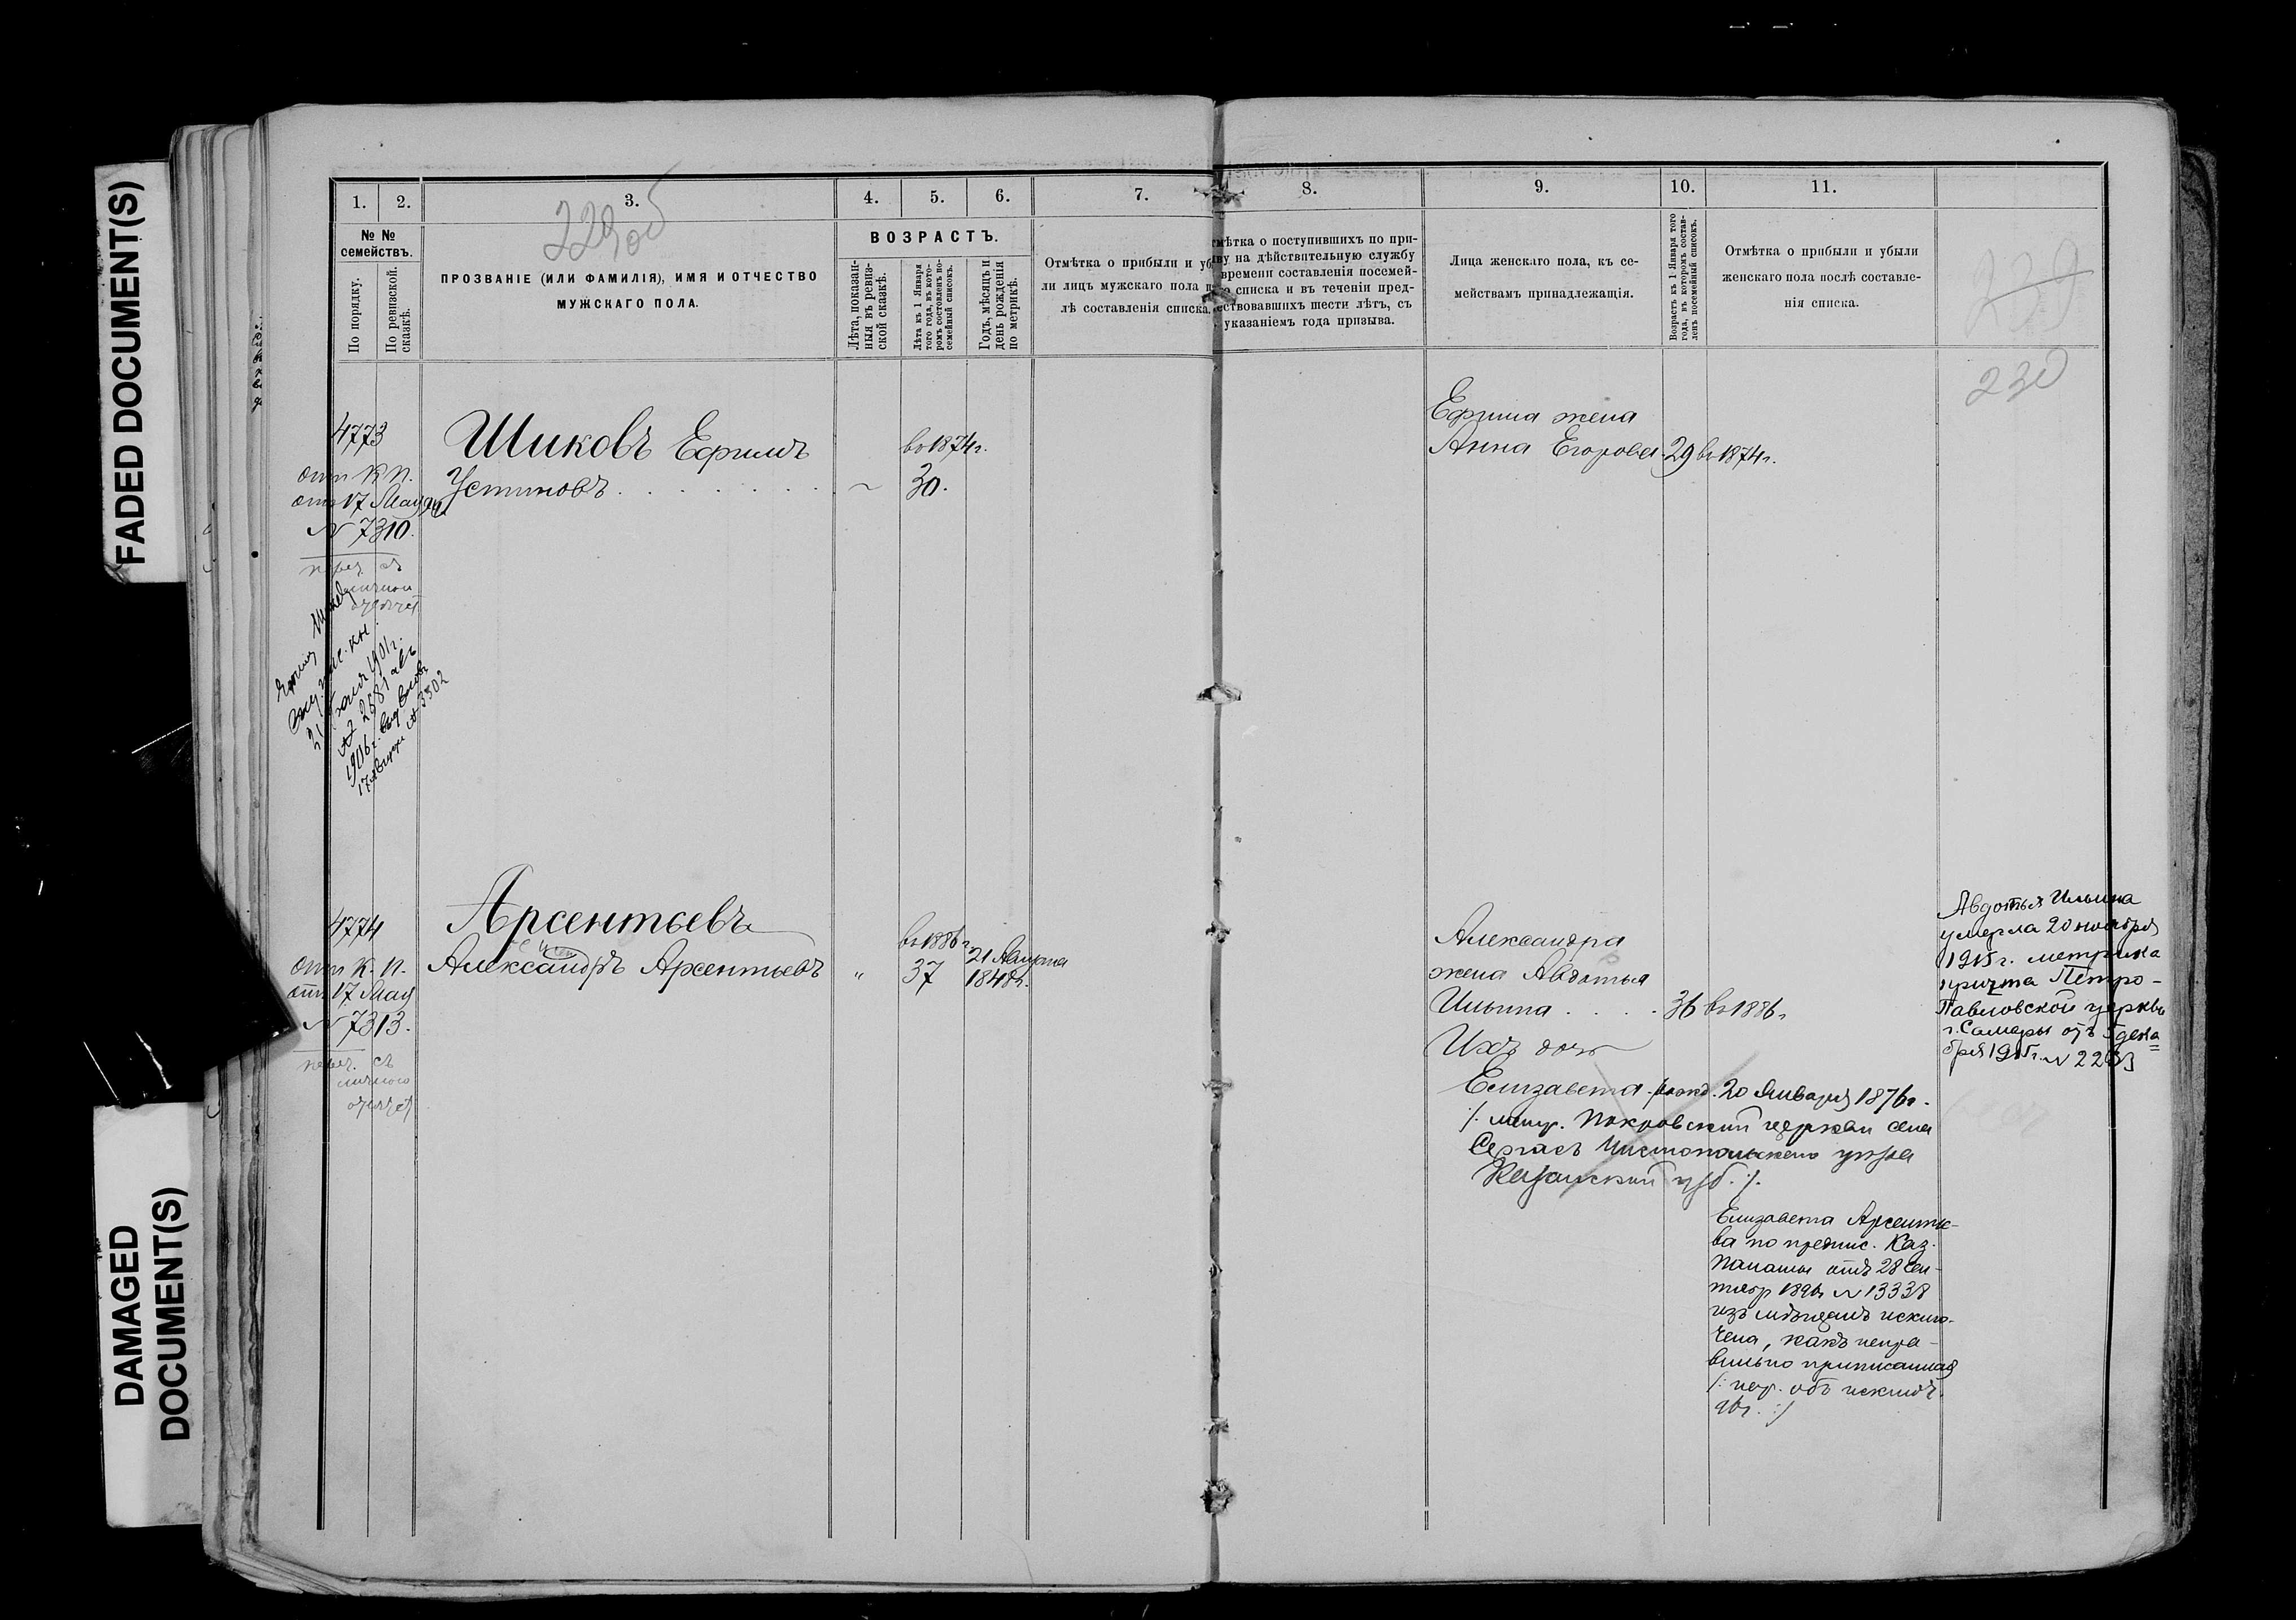 FADED DOCUMENT(S)
DAMAGED
DOCUMENT(S)
1.
2.
3.
4.
5.
6.
7.
8.
9.
10.
11.
229 об
№ №
семействъ.
По порядку.
По ревизской
сказкѣ.
ПРОЗВАНІЕ (ИЛИ ФАМИЛІЯ), ИМЯ И ОТЧЕСТВО
МУЖСКАГО ПОЛА.
ВОЗРАСТЪ.
Лѣта, показан-
ныя въ ревиз-
ской сказкѣ.
Лѣта къ 1 Января
того года, въ кото-
ромъ составленъ по-
семейный списокъ.
Годъ, мѣсяцъ и
день рожденія
по метрикѣ.
Отмѣтка о прибыли и уб
ли лицъ мужскаго пола п
лѣ составленія списка.
мѣтка о поступившихъ по при-
ву на дѣйствительную службу
времени составленія посемей-
о списка и въ теченіи пред-
ествовавшихъ шести лѣтъ, съ
указаніемъ года призыва.
Лица женскаго пола, къ се-
мействамъ принадлежащія.
Возрастъ къ 1 Января того
года, въ которомъ состав-
ленъ посемейный списокъ.
Отмѣтка о прибыли и убыли
женскаго пола послѣ составле-
нія списка.
239
230
4773
отп К. П.
отъ 17 Мая 94
№ 7310.
переч. съ
Шиковъ Ефимъ
Устиновъ
во 1874 г.
30.
Ефима жена
Анна Егорова 29 во 1874 г.
21 1901 г.
№ 2581
1906 г.
17 № 3302
4774
отп К. П.
отъ 17 Мая
№ 7313.
переч. съ
личного
Арсентьевъ
Александръ Арсентьевъ
"
во 1886 г.
37
21 Августа
1848 г.
Александра
жена Авдотья
Ильина 36 во 1886 г.
Ихъ дочь
Елизавета рожд. 20 Января 1876 г.
/: метр. Покровской церкви села
Сергасъ Чистопольскаго уѣзда
Казанской губ. :/.
Елизавета Арсентье-
ва по предпис. Каз.
Палаты отъ 28 Сен-
тябр 189 № 13338
изъ мѣщанъ исклю-
чена, какъ непра-
вильно приписанная
/: пер. объ исключ.
Авдотья Ильина
умерла 20 ноября
1915 г. метрика
причта Петро-
Павловской церкви
г. Самары отъ 5 дека
бря 1915 г. № 2263